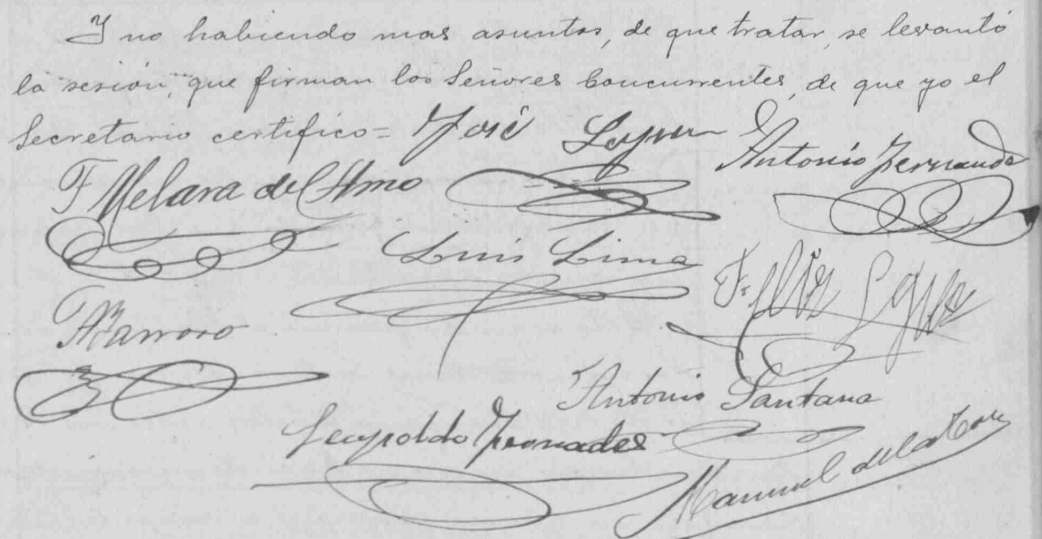 Y no habiendo mas asuntos, de que tratar, se levantó
la sesión, que firman los Señores Concurrentes, de que yo el
Secretario certifico= José
Antonio Fernande
F Melara del Amo
Luis Lima
Felix
Marroro
Antonio Santana
Leopoldo Fernades
Manuel de la Torre